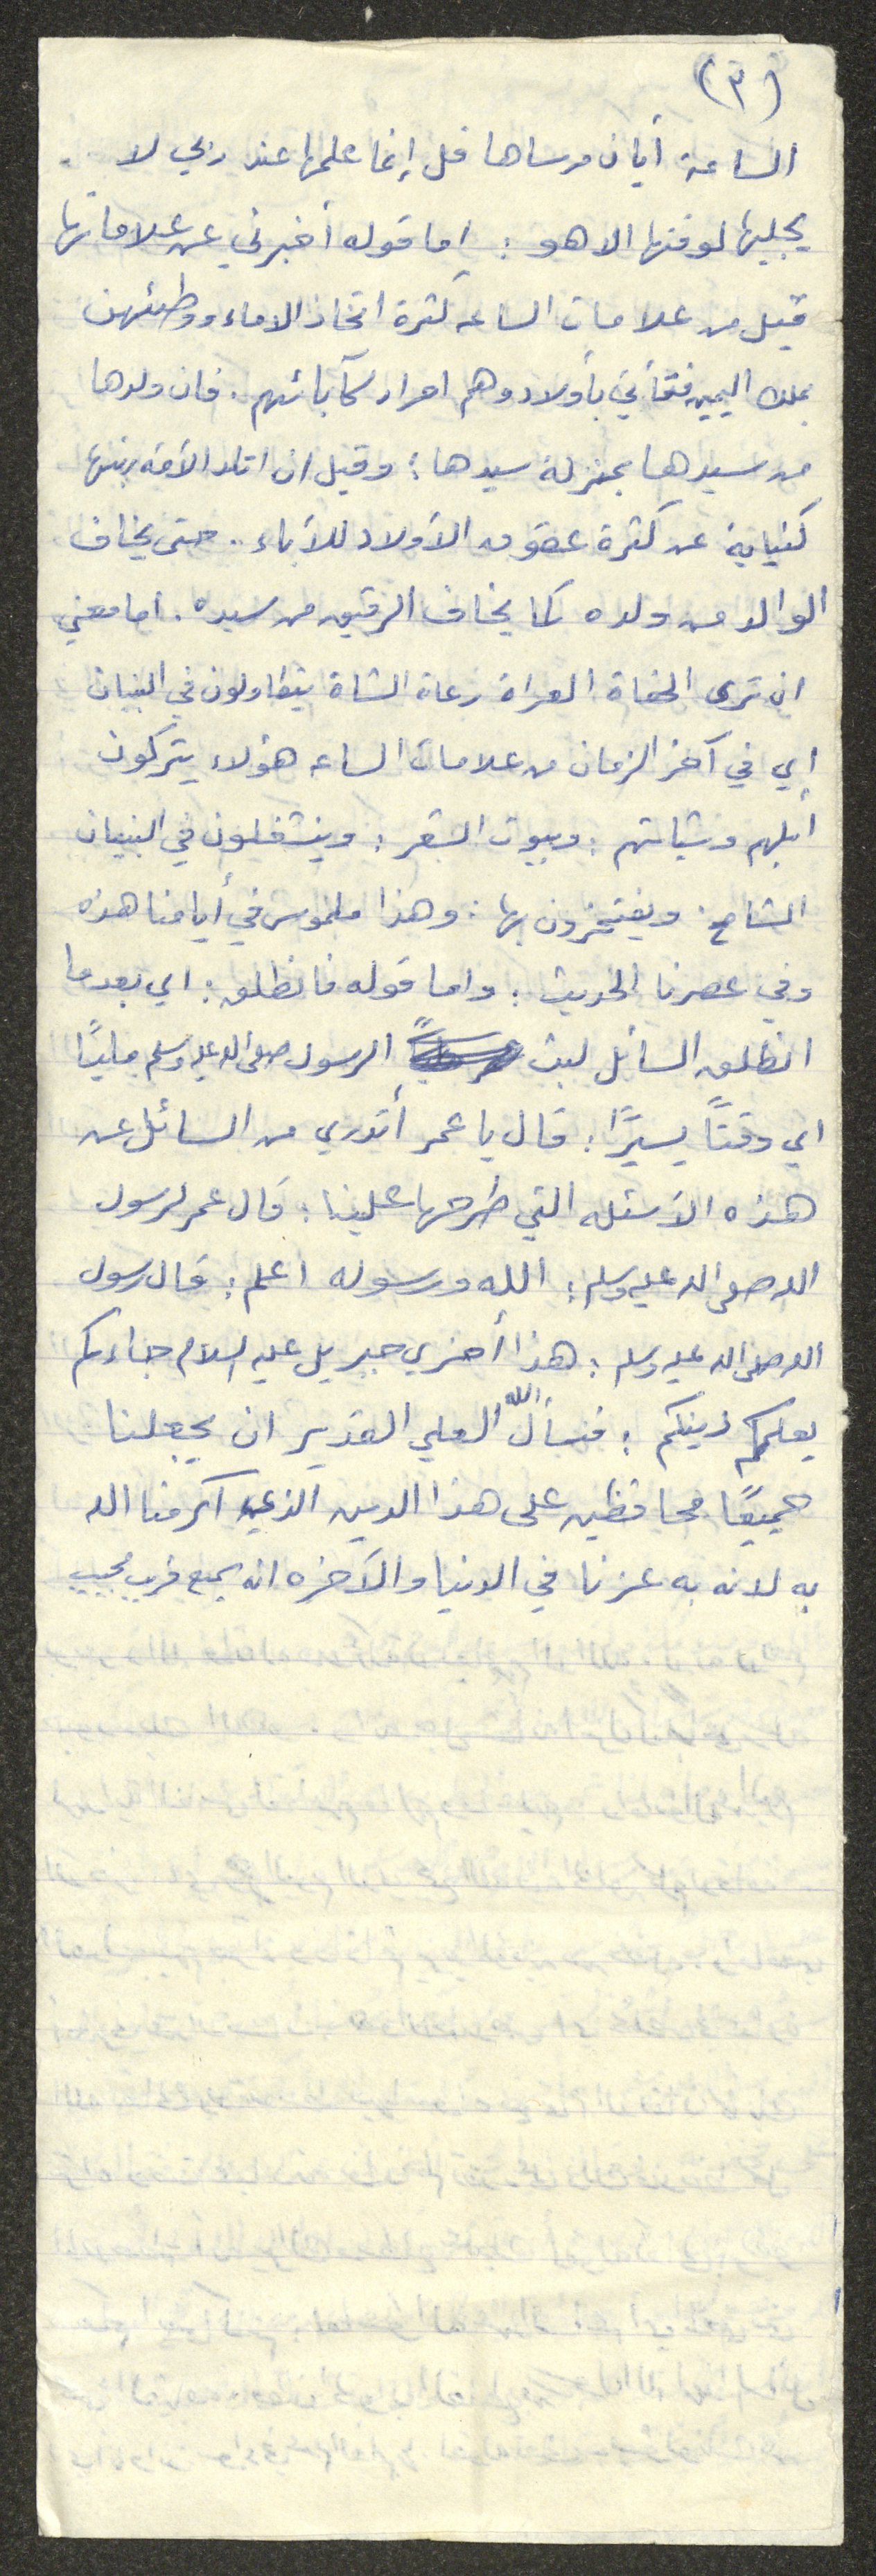 (٣)
الساعة أيان مرساها قل إنما علمها عند ربي لا
يجليها لوقتها الا هو : اما قوله أخبرني عن علاماتها
قيل من علامات الساعه كثرة اتخاذ الاماء ووطئهن
بملك اليمين فتأتي بأولاد وهم احرار كآبائهم . فان ولدها
من سيدها بمنزلة سيدها : وقيل ان اتلد الأمة ربتها
كناية عن كثرة عقوق الأولاد للأباء . حتى يخاف
الوالد من ولده كما يخاف الرقيق من سيده . اما معنى
ان ترى الحفاة العراة رعاة الشاة يتطاولون في البنيان
اي في آخر الزمان من علامات الساعه هؤلاء يتركون
أبلهم وشياتهم : وبيوت الشعر : وينشغلون في البنيان
الشامخ . ويفتخرون بها : وهذا ملموس في أيامنا هذه
وفي عصرنا الحديث : واما قوله فانطلق : اي بعدما
انطلق السائل لبث الرسول صلى الله عليه وسلم مليًا
اي وقتاً يسيرًا : قال يا عمر أتدري من السائل عن
هذه الأسئله التي طرحها علينا : قال عمر لرسول
الله صلى الله عليه وسلم : الله ورسوله اعلم : قال رسول
الله صلى الله عليه وسلم : هذا أخي جبريل عليه السلام جاءكم
يعلمكم دينكم : فنسأل الله العلي القدير ان يجعلنا
جميعًا محافظين على هذا الدين الذي اكرمنا الله
به لانه به عزنا في الدنيا والآخره انه سميع قريب مجيب